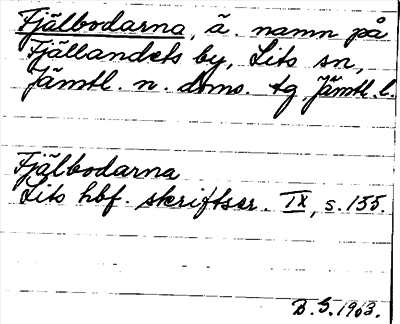 Fjälbodarna, ä. namn på
Fjällandets by, Lits sn,
Jämtl. n. doms. tg Jämtl. l.
Fjälbodarna
Lits hbf. skriftser. IX, s. 155.
B.G. 1963.